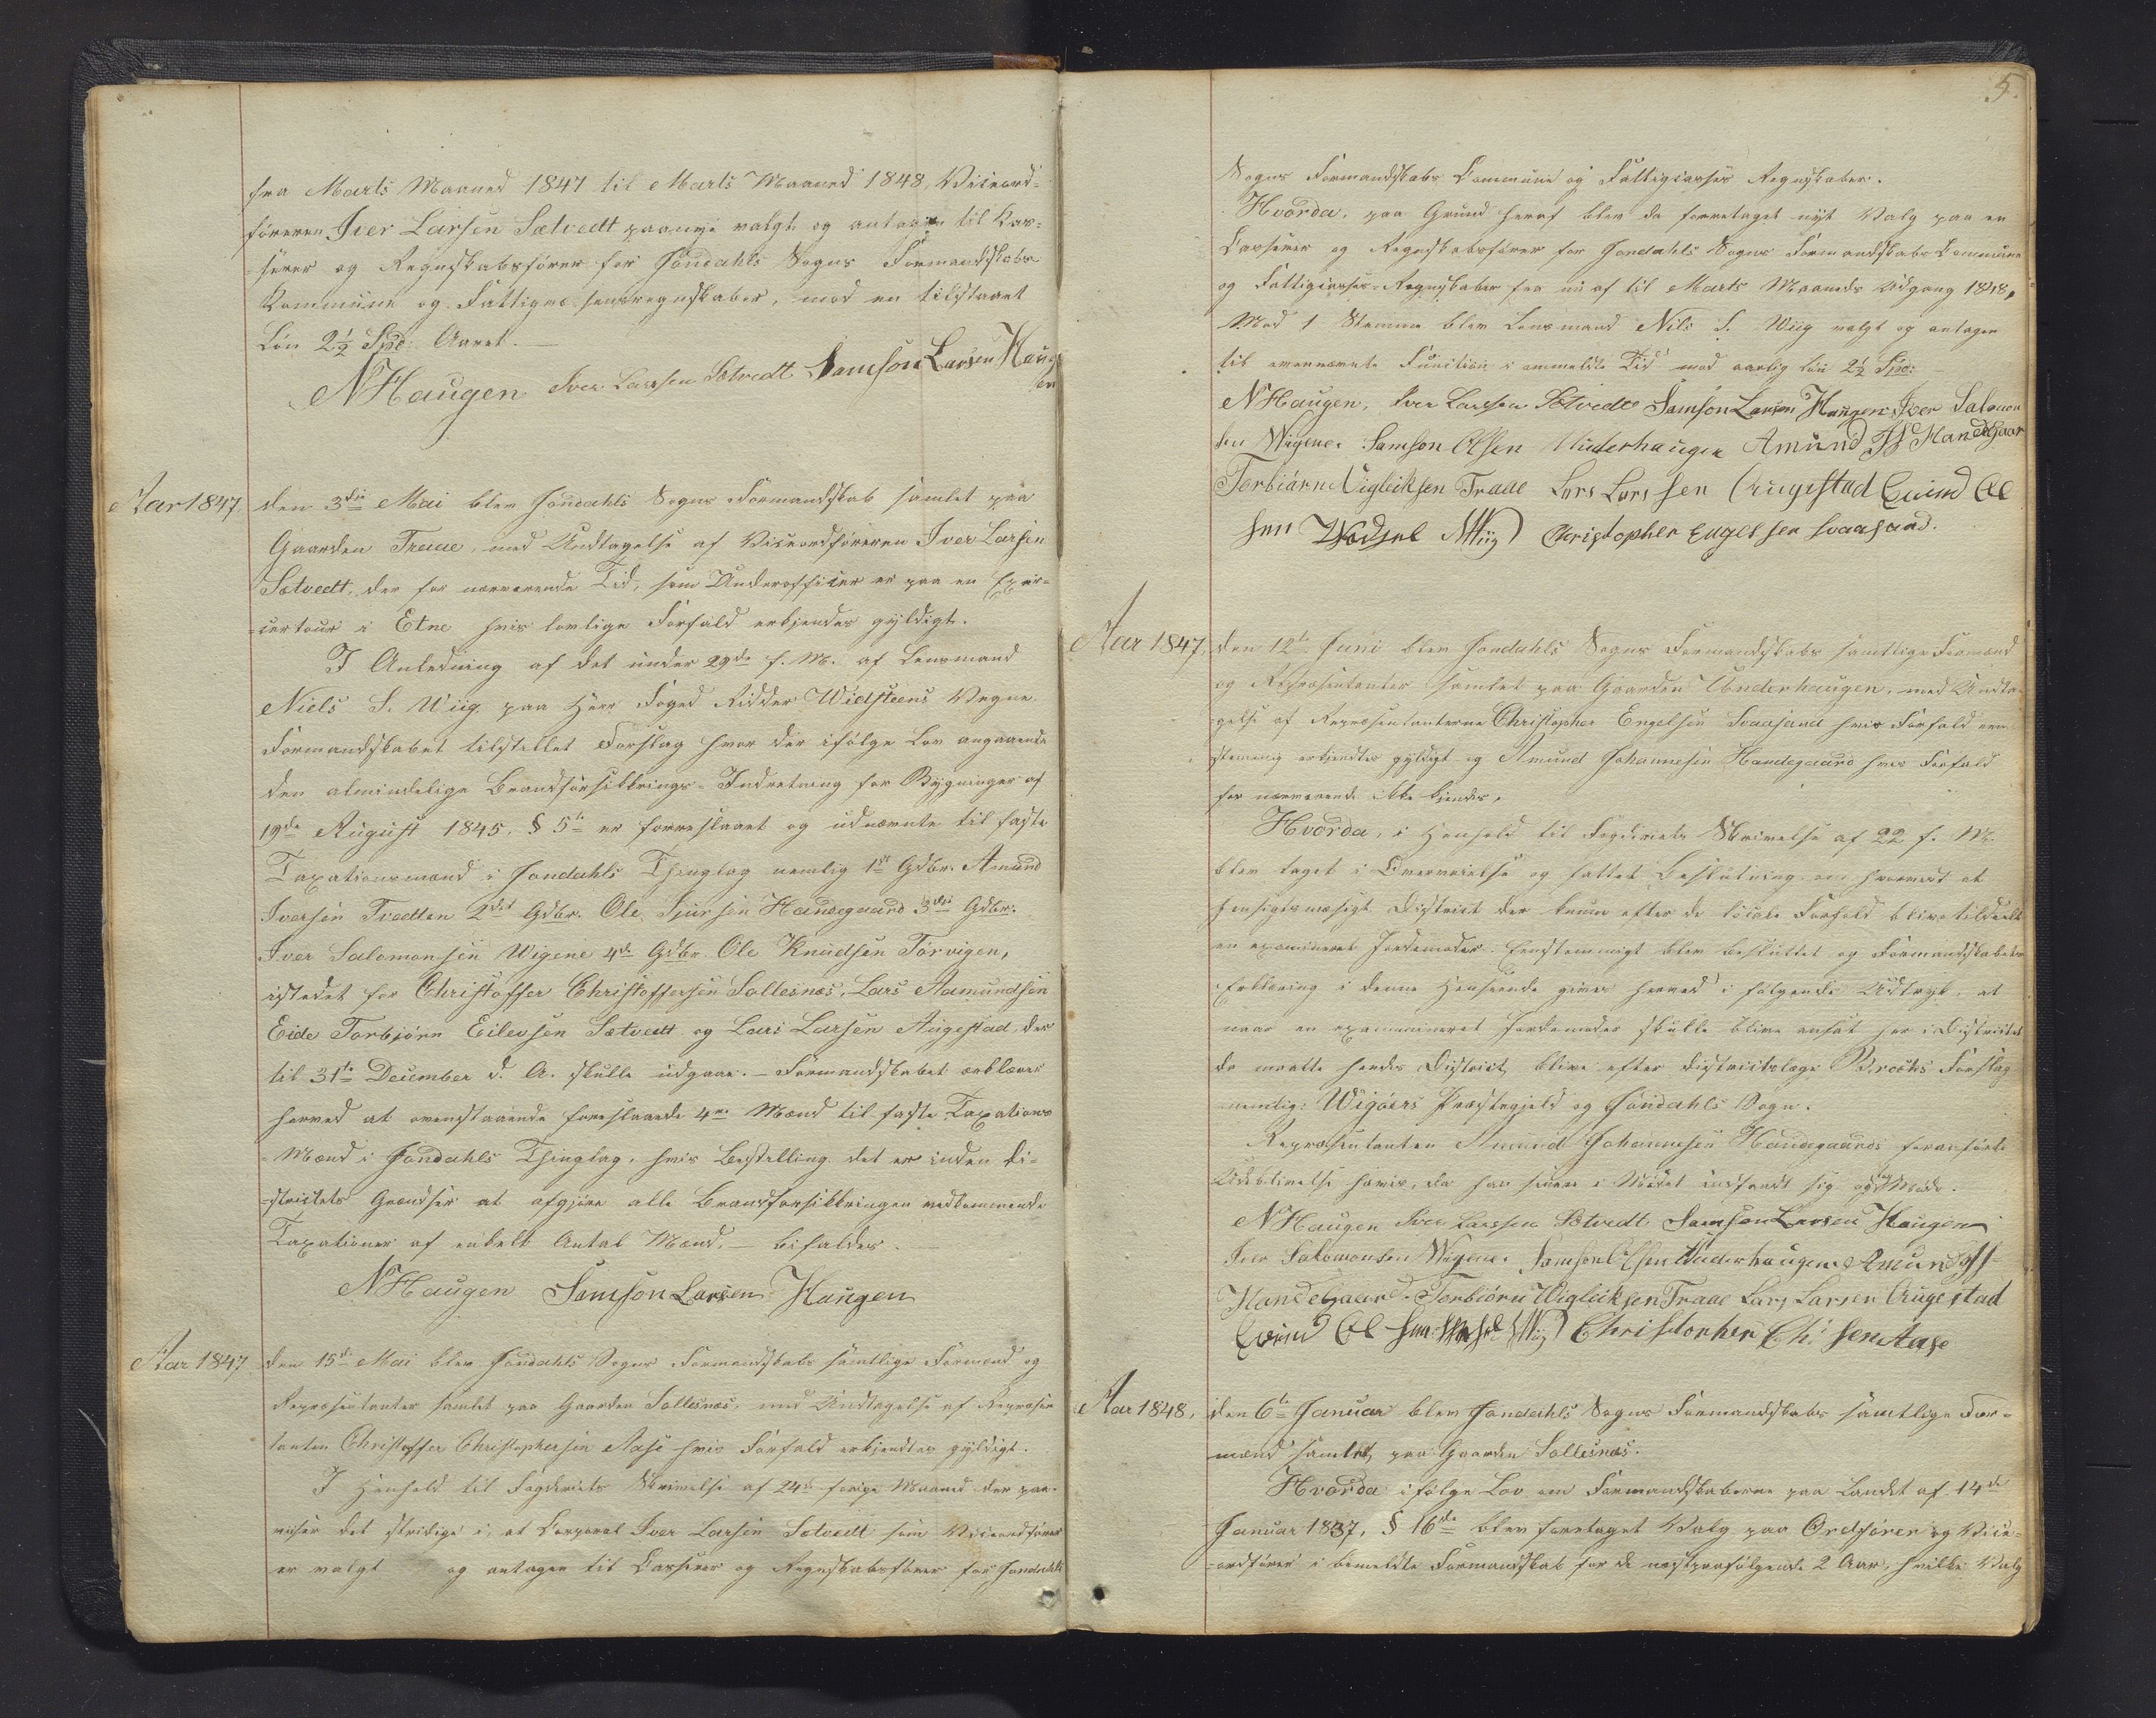 fra Marts Maaned 1847 til Marts Maaned 1848, Viceord-
föreren Iver Larsen Sætvedt paanyt valgt og antagen til Kas-
=serer og Regnskabsfører for Jondahls Sogns Formandskabs
Kommune og Fattigvæsensregnskaber, mod en tilstaaet
Løn 2½ Spd: Aaret. —
NHaugen Iver Larssen Sætvedt Samson Larsen Haug
en
Aar 1847.
den 3die Mai blev Jondahls Sogns Formandskab samlet paa
Gaarden Traae, med Undtagelse af Viceordføreren Iver Larsen
Sætvedt, der for nærværende Tid, som Underofficer er paa en Exer-
=certour i Etne hvis lovlige Forfald erkjendes gyldigt.
I Anledning af det under 29de f. M. af Lensmand
Niels S. Wiig paa Herr Foged Ridder Widsteens Vegne
Formandskabet tilstillet Forslag hvor der ifølge Lov angaaende
den almindelige Brandforsikkrings-Indretning for Bygninger af
19de August 1845, § 5te er forreslaaet og udnævnte til faste
Taxationsmænd i Jondahls Thinglag nemlig 1st Gdbr. Amund
Iversen Tvedten 2det Gdbr. Ole Sjursen Handegaard 3die Gdbr.
Iver Salomonsen Wigene 4de Gdbr. Ole Knudsen Torvigen,
istedet for Christoffer Christoffersen Sollesnæs, Lars Aamundsen
Eide Torbjørn Eilevsen Sætvedt og Lars Larsen Augestad, der
til 31te December d. A. skulle udgaae. – Formandskabet erklærer
herved at ovenstaaende foreslaaede 4re Mænd til faste Taxations
=Mænd i Jondahls Thinglag, hvis Bestilling det er inden Di-
=strictets Grændser at afgjøre alle Brandforsikkringen vedkommende
Taxationer af enkelt Antal Mænd, bifaldes. —
NHaugen Samson Larsen Haugen
Aar 1847
den 15de Mai blev Jondahls Sogns Formandskabs samtlige Formænd og
Repræsentanter samlet paa Gaarden Sollesnæs, med Undtagelse af Repræsen
tanten Christoffer Christophersen Aase hvis Forfald erkjendtes gyldigt.
I Henhold til Fogderiets Skrivelse af 24de forige Maaned der paa-
viser det stridige i, at Corporal Iver Larsen Sætvedt som Viceordfører
er valgt og antagen til Casserer og Regnskabsfører for Jondahls
5.
Sogns Formandskabs Commune og Fattigcasses Regnskaber.
Hvorda, paa Grund heraf blev da forretaget nyt Valg paa en
Casserer og Regnskabsfører for Jondahls Sogns Formandskabs Commune
og Fattigcasses-Regnskaber fra nu af til Marts Maaneds Udgang 1848,
Med 1 Stemme blev Lensmand Nils S. Wiig valgt og antagen
til ovennævnte Function i anmeldte Tid mod aarlig løn 2½ Spd: —
NHaugen, Iver Larssen Sætvedt Samson Larsen Haugen Iver Salomon
sen Wigene. Samson Olsen Underhaugen Amund JS Handegaar
Torbiørn Vigleiksen Traae Lars Larssen Augestad Eivind Ol
sen NWiig Christopher Engelsen Svaasand.
Aar 1847,
den 12te Juni blev Jondahls Sogns Formandskabs samtlige Formænd
og Repræsentanter samlet paa Gaarden Underhaugen, med Undta-
gelse af Repræsentanterne Christopher Engelsen Svaasand hvis Forfald een
stemmig erkjendtes gyldigt og Amund Johannesen Handegaard hvis Forfald
for nærværende ikke kjendes.
Hvorda, i Henhold til Fogderiets Skrivelse af 22 f. M.
blev taget i Overveielse og fattet Beslutning om hvorvidt et
hensigtsmæsigt District der kunne efter de locale Forhold blive tildeelt
en examineret Jordemoder. Eenstemmigt blev besluttet og Formandskabets
Erklæring i denne Henseende gives herved i følgende Udtryk, at
naar en examumineret Jordemoder skulle blive ansat her i Districtet
da maatte hendes District blive efter Districtslæge Brochs Forslag
nemlig: Wigøers Præstegjeld og Jondahls Sogn.
Repræsentanten Amund Johannesen Handegaards foranførte
Udeblivelse hæves, da han senere i Mødet indfandt sig og tog Møde.
NHaugen Iver Larssen Sætvedt Samson Larsen Haugen
Iver Salomonsen Wigene. Samson Olsen Underhaugen Amund JS
Handegaard. Torbiörn Wigleiksen Traae Lars Larsen Augestad
Eivind Olsen NWiig Christopher Ch. sen Aase
Aar 1848,
den 6te Januar blev Jondahls Sogns Formandskabs samtlige For-
mænd samlet paa Gaarden Sollesnæs.
Hvorda ifølge Lov om Formandskaberne paa Landet af 14de
Januar 1837, § 16de blev foretaget Valg paa Ordfører og Vice-
=ordfører i bemeldte Formandskab for de næstpaafølgende 2 Aar, hvilke Valg